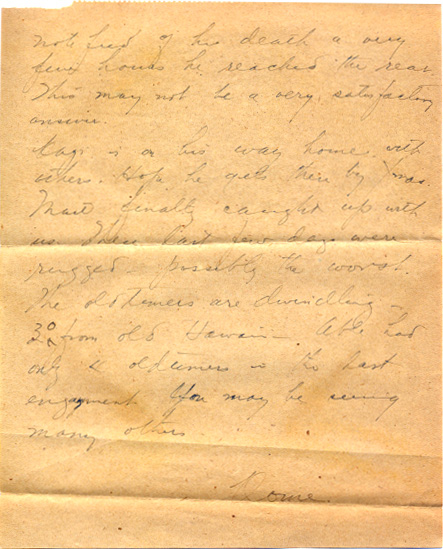 notified of his death a very
few hours he reached the rear.
This may not be a very satisfactory
answer.
Kagi is on his way home with
others. Hope he gets there by Xmas.
Must finally caught up with
us. These last few days were
rugged - possibly the worst.
The oldtimers are dwindling -
30 from old Hawaii - Able had
only 4 oldtimers in the last
engagement. You may be seeing
many others.